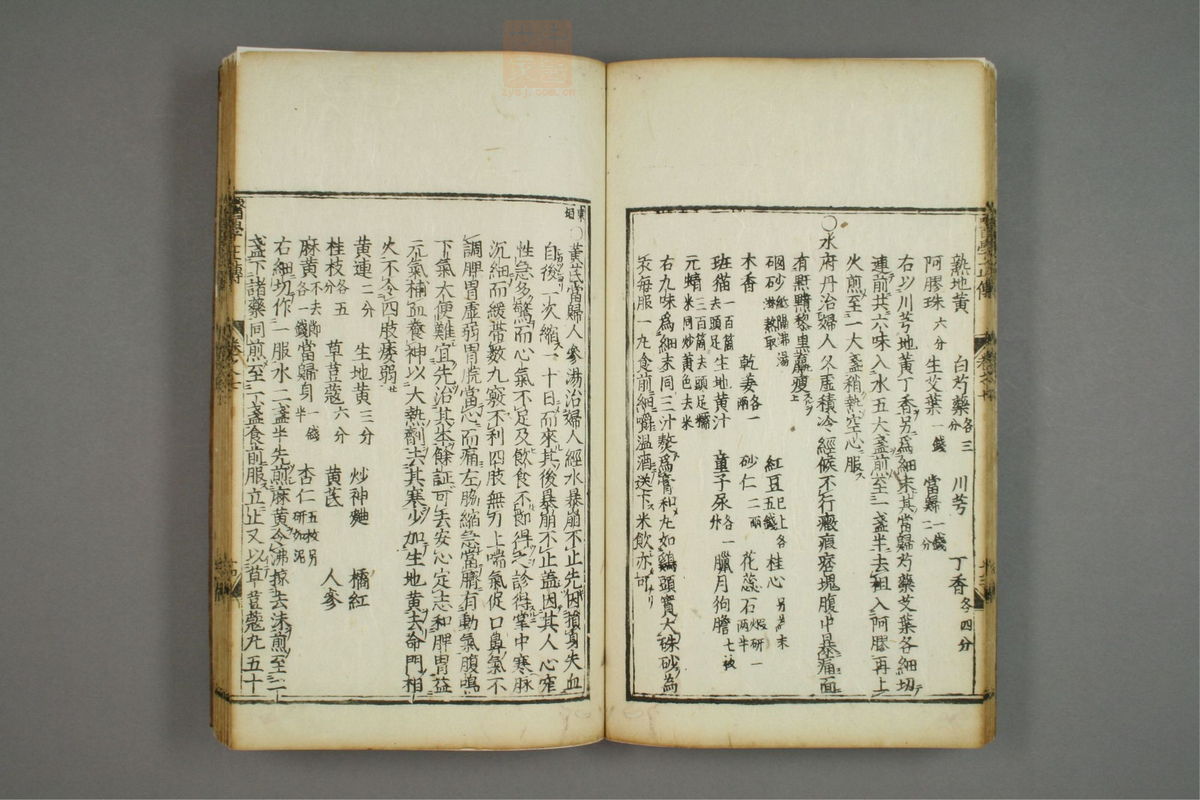 熟地黄 白芍藥各三分 川芎 丁香各四分
阿膠珠六分 生艾葉一錢 當歸一錢二分
右以川芎地黄丁香另爲細末其當歸芍藥艾葉各細切
連前共六味入水五大盞煎至一盞半去柤入阿膠再上
火煎至一大盞稍熱空心服
〇水府丹治婦人久虛積冷經候不行癥瘕痞塊腹中暴痛面
有䵟黯黎黒羸瘦
硇砂紙隔沸湯淋熬取 紅豆五錢已上各 桂心另爲末
木香 乾姜各一兩 砂仁二兩 花蕊石煅研一兩半
班猫一百箇去頭足 生地黄汁 童子尿各一升 臘月狗膽七枚
元蜻三百箇去頭足糯米同炒黄色去米
右九味爲細末同三汁熬爲膏和丸如鷄頭實大硃砂為
衣每服一丸食前細嚼温酒送下米飲亦可
東垣
〇黄芪當歸人參湯治婦人經水暴崩不止先因損身失血
自後一次縮一十日而來其後暴崩不止蓋因其人心窄
性急多驚而心氣不足及飲食不節得之診得掌中寒脉
沉細而緩帶數九竅不利四肢無力上喘氣促口鼻氣不
調脾胃虚弱胃脘當心而痛左脇縮急當臍有動氣腹鳴
下氣大便難宜先治其本餘証可去安心定志和脾胃益
元氣補血養神以大熱劑去其寒少加生地黄去命門相
火不令四肢痿弱
黄連二分 生地黄三分 炒神麯 橘紅
桂枝各五分 草荳蔻六分 黄芪 人參
麻黄不去節各一錢 當歸身一錢半 杏仁五枚另研如泥
右細切作一服水二盞半先煎麻黄令沸掠去沫煎至二
盞下諸藥同煎至一盞食前服立止又以草荳蔻丸五十
醫學正傳
卷之七
十四